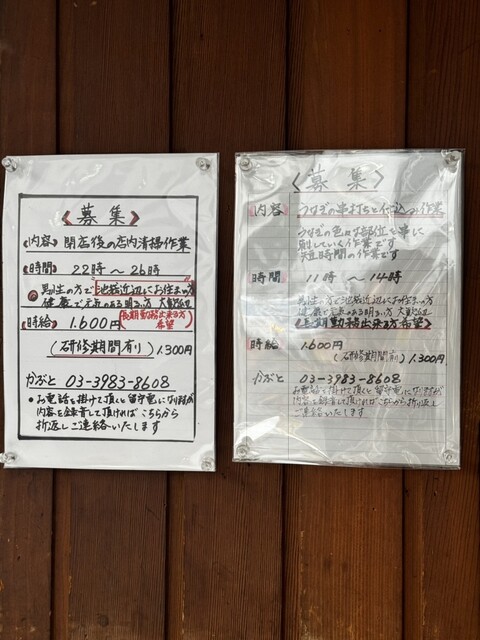 《募集》
《内容》 閉店後の店内清掃作業
《時間》 22時〜26時
男性の方で池袋近辺にお住まいの方
健康で元気のある明るい方 大歓迎
《時給》 1.600円 (長期勤務出来る方希望)
(研修期間有り) 1.300円
かぶと 03-3983-8608
●お電話を掛けて頂くと留守電になりますが
内容を録音して頂ければこちらから
折返しご連絡いたします
《募集》
内容 うなぎの串打ちと仕込み作業
うなぎの色々な部位を串に
刺していく作業です
短時間の作業です
時間 11時〜14時
男性の方で池袋近辺にお住まいの方
健康で元気のある明るい方 大歓迎
《長期勤務出来る方希望》
時給 1.600円
(研修期間有) 1.300円
かぶと 03-3983-8608
お電話を掛けて頂くと留守電になりますが
内容を録音して頂ければこちらから折り返し
ご連絡いたします